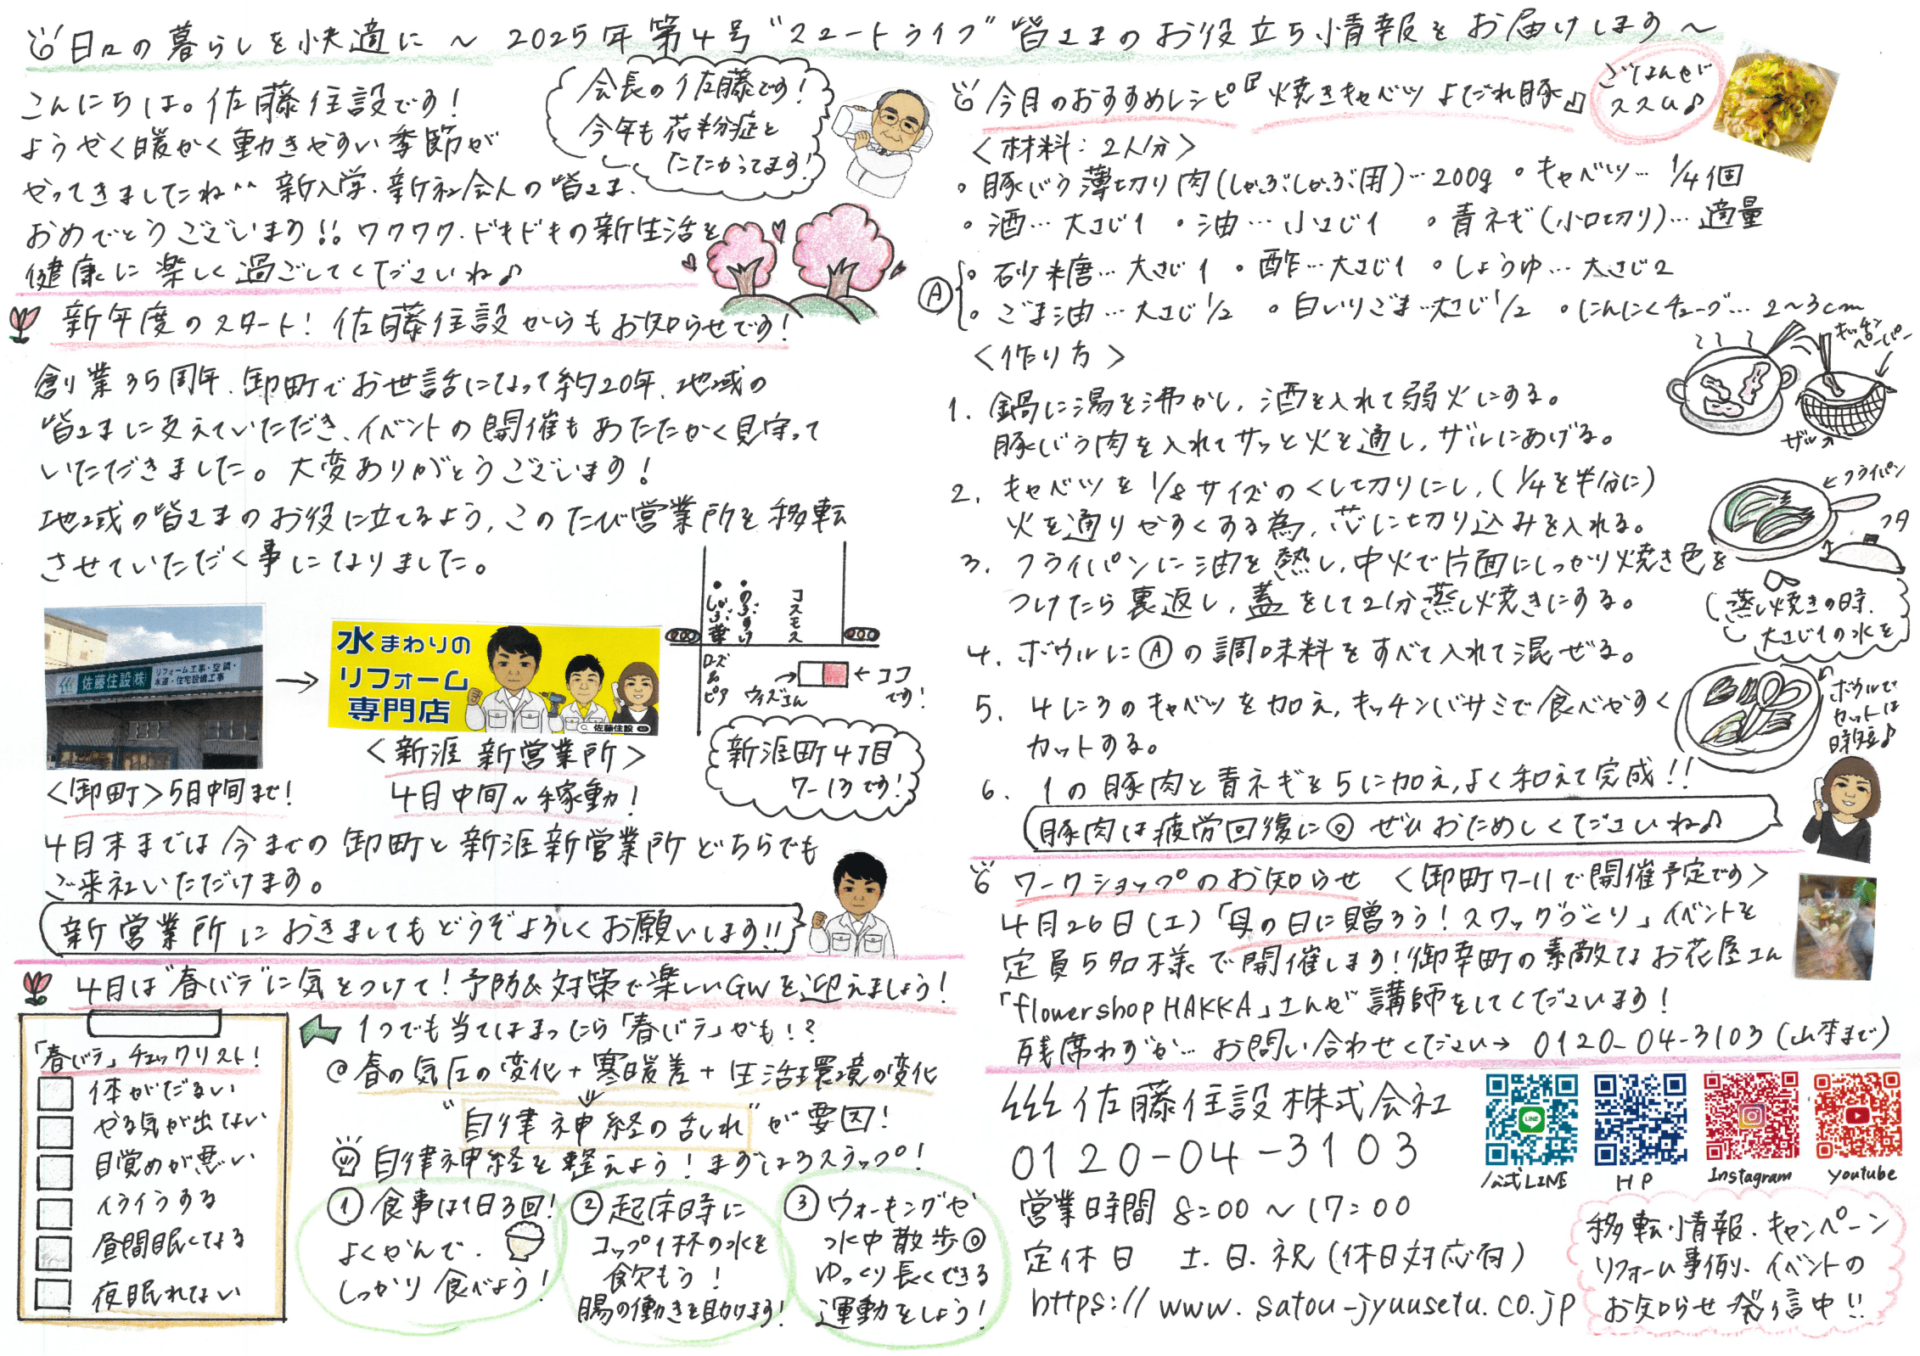 日々の暮らしを快適に ～ 2025年第4号 "スマートライフ" 皆さまのお役立ち情報をお届けします～
こんにちは。佐藤住設です！
ようやく暖かく動きやすい季節が
やってきましたね^^ 新入学・新社会人の皆さま、
おめでとうございます!! ワクワク・ドキドキの新生活を
健康に楽しく過ごしてくださいね♪
会長の佐藤です！
今年も花粉症と
たたかってます！
新年度のスタート！ 佐藤住設からもお知らせです！
創業35周年、卸町でお世話になって約20年、地域の
皆さまに支えていただき、イベントの開催もあたたかく見守って
いただきました。大変ありがとうございます！
地域の皆さまのお役に立てるよう、このたび営業所を移転
させていただく事になりました。
佐藤住設(株)
リフォーム工事・空調・
水道・住宅設備工事
→
水まわりの
リフォーム
専門店
佐藤住設
<卸町>5月中旬まで！
<新涯 新営業所>
4月中旬～稼動！
・しゃぶ葉
・のぶすけ
コスモス
ローズ
ピア
ウィズさん
→
← ココ
です！
新涯町4丁目
7-13です！
4月末までは今までの卸町と新涯新営業所どちらでも
ご来社いただけます。
新営業所におきましてもどうぞよろしくお願いします!!
4月は"春バテ"に気をつけて！予防&対策で楽しいGWを迎えましょう！
「春バテ」チェックリスト！
体がだるい
やる気が出ない
目覚めが悪い
イライラする
昼間眠くなる
夜眠れない
1つでも当てはまったら「春バテ」かも！？
◎春の気圧の変化+寒暖差+生活環境の変化
"自律神経の乱れ"が要因！
自律神経を整えよう！まずは3ステップ！
① 食事は1日3回！
よくかんで、
しっかり食べよう！
② 起床時に
コップ1杯の水を
飲もう！
腸の働きを助けます！
③ ウォーキングや
水中散歩◎
ゆっくり長くできる
運動をしよう！
今月のおすすめレシピ『焼きキャベツよだれ豚』
ごはんが
ススム♪
<材料：2人分>
・豚バラ薄切り肉(しゃぶしゃぶ用)…200g ・キャベツ…1/4個
・酒…大さじ1 ・油…小さじ1 ・青ネギ(小口切り)…適量
Ⓐ ・砂糖…大さじ1 ・酢…大さじ1 ・しょうゆ…大さじ2
・ごま油…大さじ1/2 ・白いりごま…大さじ1/2 ・にんにくチューブ…2～3cm
<作り方>
1. 鍋に湯を沸かし、酒を入れて弱火にする。
豚バラ肉を入れてサッと火を通し、ザルにあげる。
キッチン
ペーパー
ザル
2. キャベツを1/8サイズのくし切りにし、(1/4を半分に)
火を通りやすくする為、芯に切り込みを入れる。
フライパン
フタ
3. フライパンに油を熱し、中火で片面にしっかり焼き色を
つけたら裏返し、蓋をして2分蒸し焼きにする。
蒸し焼きの時、
大さじ1の水を
4. ボウルにⒶの調味料をすべて入れて混ぜる。
5. 4に3のキャベツを加え、キッチンバサミで食べやすく
カットする。
ボウルで
カットは
時短♪
6. 1の豚肉と青ネギを5に加え、よく和えて完成!!
豚肉は疲労回復に◎ ぜひおためしくださいね♪
ワークショップのお知らせ <卸町ワールで開催予定です>
4月26日(土)「母の日に贈ろう！スワッグづくり」イベントを
定員5名様で開催します！御幸町の素敵なお花屋さん
「flowershop HAKKA」さんが講師をしてくださいます！
残席わずか… お問い合わせください→ 0120-04-3103 (山本まで)
佐藤住設株式会社
0120-04-3103
営業時間 8:00～17:00
定休日 土.日.祝(休日対応有)
https://www.satou-jyuusetu.co.jp
LINE
公式LINE
HP
Instagram
youtube
移転情報、キャンペーン
リフォーム事例、イベントの
お知らせ発信中!!